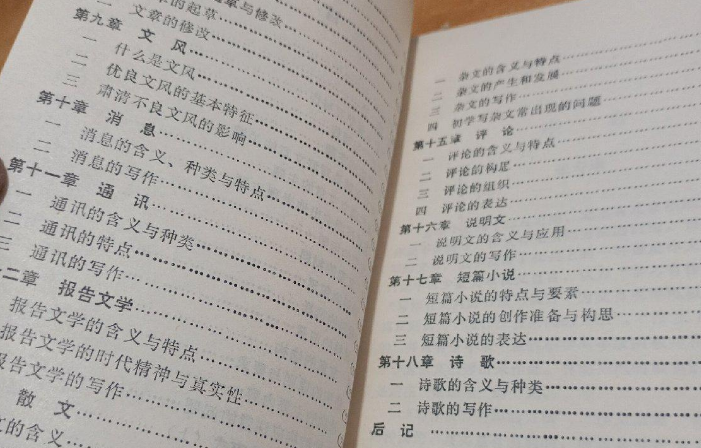 章与修改
的起草
二 文章的修改
第九章 文 风
一 什么是文风
二 优良文风的基本特征
三 肃清不良文风的影响
第十章 消 息
一 消息的含义、种类与特点
二 消息的写作
第十一章 通 讯
一 通讯的含义与种类
二 通讯的特点
三 通讯的写作
二章 报告文学
报告文学的含义与特点
报告文学的时代精神与真实性
报告文学的写作
散 文
文的含义
一 杂文的含义与特点
二 杂文的产生和发展
三 杂文的写作
四 初学写杂文常出现的问题
第十五章 评 论
一 评论的含义与特点
二 评论的构思
三 评论的组织
四 评论的表达
第十六章 说明文
一 说明文的含义与应用
二 说明文的写作
第十七章 短篇小说
一 短篇小说的特点与要素
二 短篇小说的创作准备与构思
三 短篇小说的表达
第十八章 诗 歌
一 诗歌的含义与种类
二 诗歌的写作
后 记